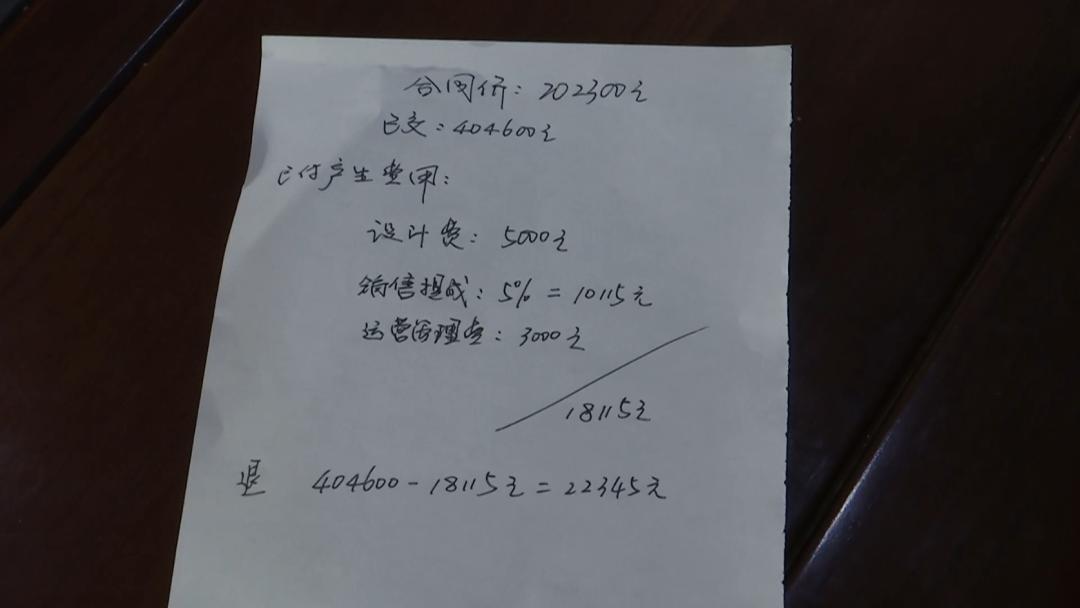 合同价：202300元
已交：404600元
已付产生费用：
设计费：5000元
销售提成：5% = 10115元
运营管理费：3000元
18115元
退 404600-18115元=22345元